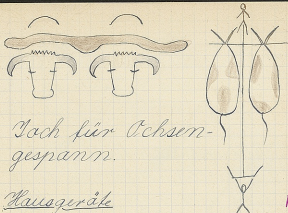 Joch für Ochsen-
gespann.
Hausgeräte